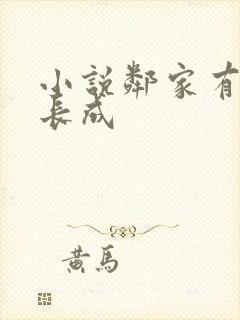 小說鄰家有
長成
黃馬